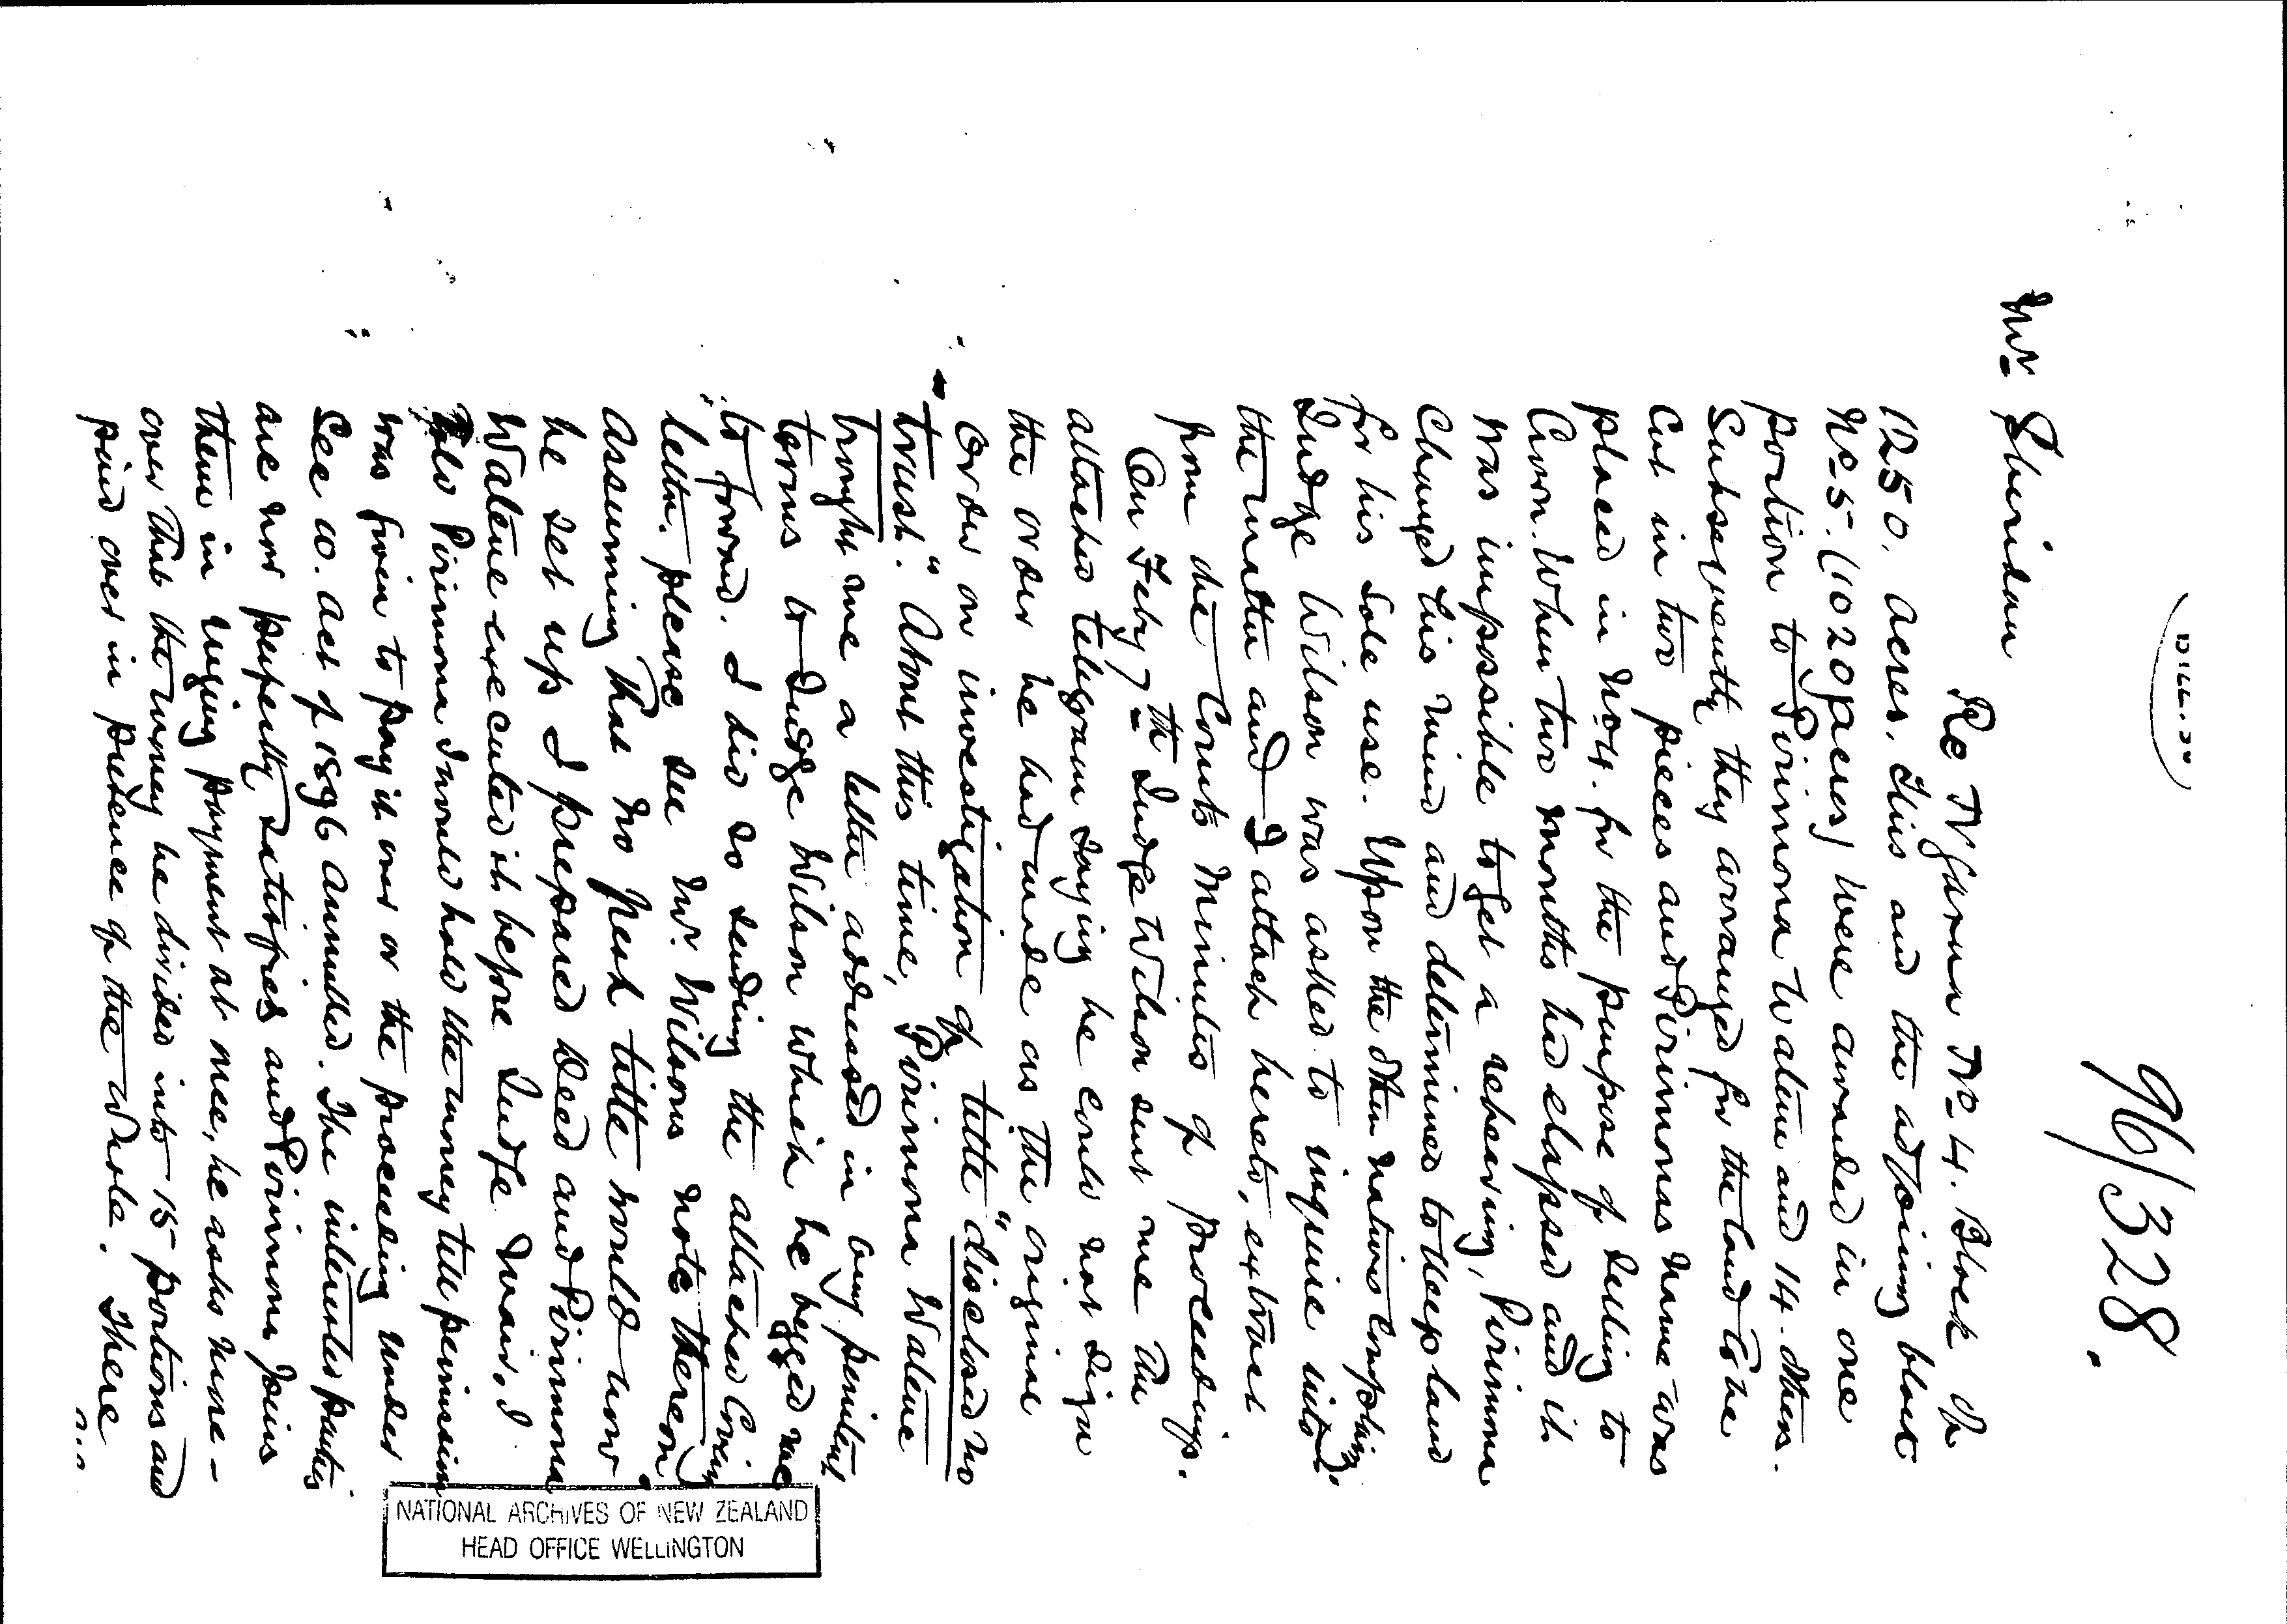 96/328.
Mr Sheridan
Re Ngarua No 4. Block of
1250. acres. This and the adjoining block
No 5. (1020 acres) were awarded in one
portion to Pirimona Watene and 14 others.
Subsequently they arranged for the land to be
cut in two pieces and Pirimonas name was
placed in No 4. for the purpose of selling to
Crown. When two months had elapsed and it
was impossible to get a rehearing, Pirimona
changed his mind and determined to keep land
for his sole use. Upon the other natives complaining
Judge Wilson was asked to inquire into
the matter and I attach hereto, extract
from the Courts Minutes of proceedings.
On Feby 7th Judge Wilson sent me the
attached telegram saying he could not sign
the order he had made as "the original
order on investigation of title "disclosed no
trust." About this time, Pirimona Watene
brought me a letter addressed in very penitent
terms to Judge Wilson which he begged me
to forward. I did so sending the attached covering
letter. please see Mr. Wilsons note thereon.
Assuming that no fresh title would now
be set up I prepared deed and Pirimona
Watene executed it before Judge Mair. I
told Pirimona I would hold the money till permission
was given to pay it over or the proceeding under
Sec 10. Act of 1896 annulled. The interested parties
are now perfectly satisfied and Pirimona joins
them in urging payment at once, he asks more-
over that the money be divided into 15 portions and
paid over in presence of the whole. There
NATIONAL ARCHIVES OF NEW ZEALAND
HEAD OFFICE WELLINGTON